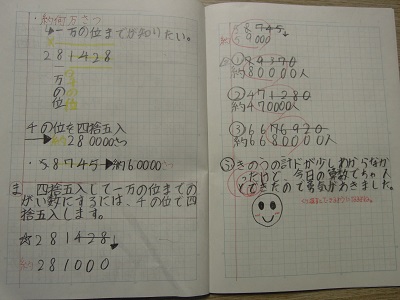 ・約何万さつ
→一万の位までが知りたい。
281428
一万の位
千の位
千の位を四捨五入
→約280000さつ
・58745→約60000さつ
ま 四捨五入して一万の位までの
がい数にするには、千の位で四
捨五入します。
☆281428
約281000
58745
約59000
①
約80000人
②471280
約470000人
③6676920
約6680000人
ふきのうの計ドが少しわからなか
ったけど、今日の算数でちゃんと
できたので勇気がわきました。